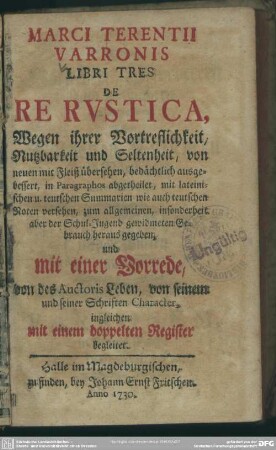 MARCI TERENTII
VARRONIS
LIBRI TRES
DE
RE RVSTICA,
Wegen ihrer Vortreflichkeit,
Nutzbarkeit und Seltenheit, von
neuen mit Fleiß übersehen, bedächtlich ausge-
bessert, in Paragraphos abgetheilet, mit lateini-
schen u. teutschen Summarien wie auch teutschen
Noten versehen, zum allgemeinen, insonderheit
aber der Schul-Jugend gewidmeten Ge-
brauch heraus gegeben,
und
mit einer Vorrede,
von des Auctoris Leben, von seinem
und seiner Schriften Character,
ingleichen
mit einem doppelten Register
begleitet.
Halle im Magdeburgischen,
zu finden, bey Johann Ernst Fritschen.
Anno 1730.
Ungültig
DFG